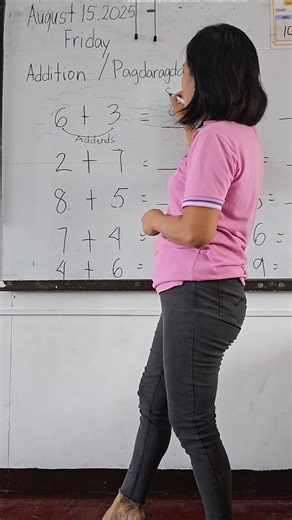 August 15, 2025
Friday
Addition / Pagdaragda
6 + 3 =
Addends
2 + 7 =
8 + 5 =
7 + 4 =
6
4 + 6 =
9 =
10